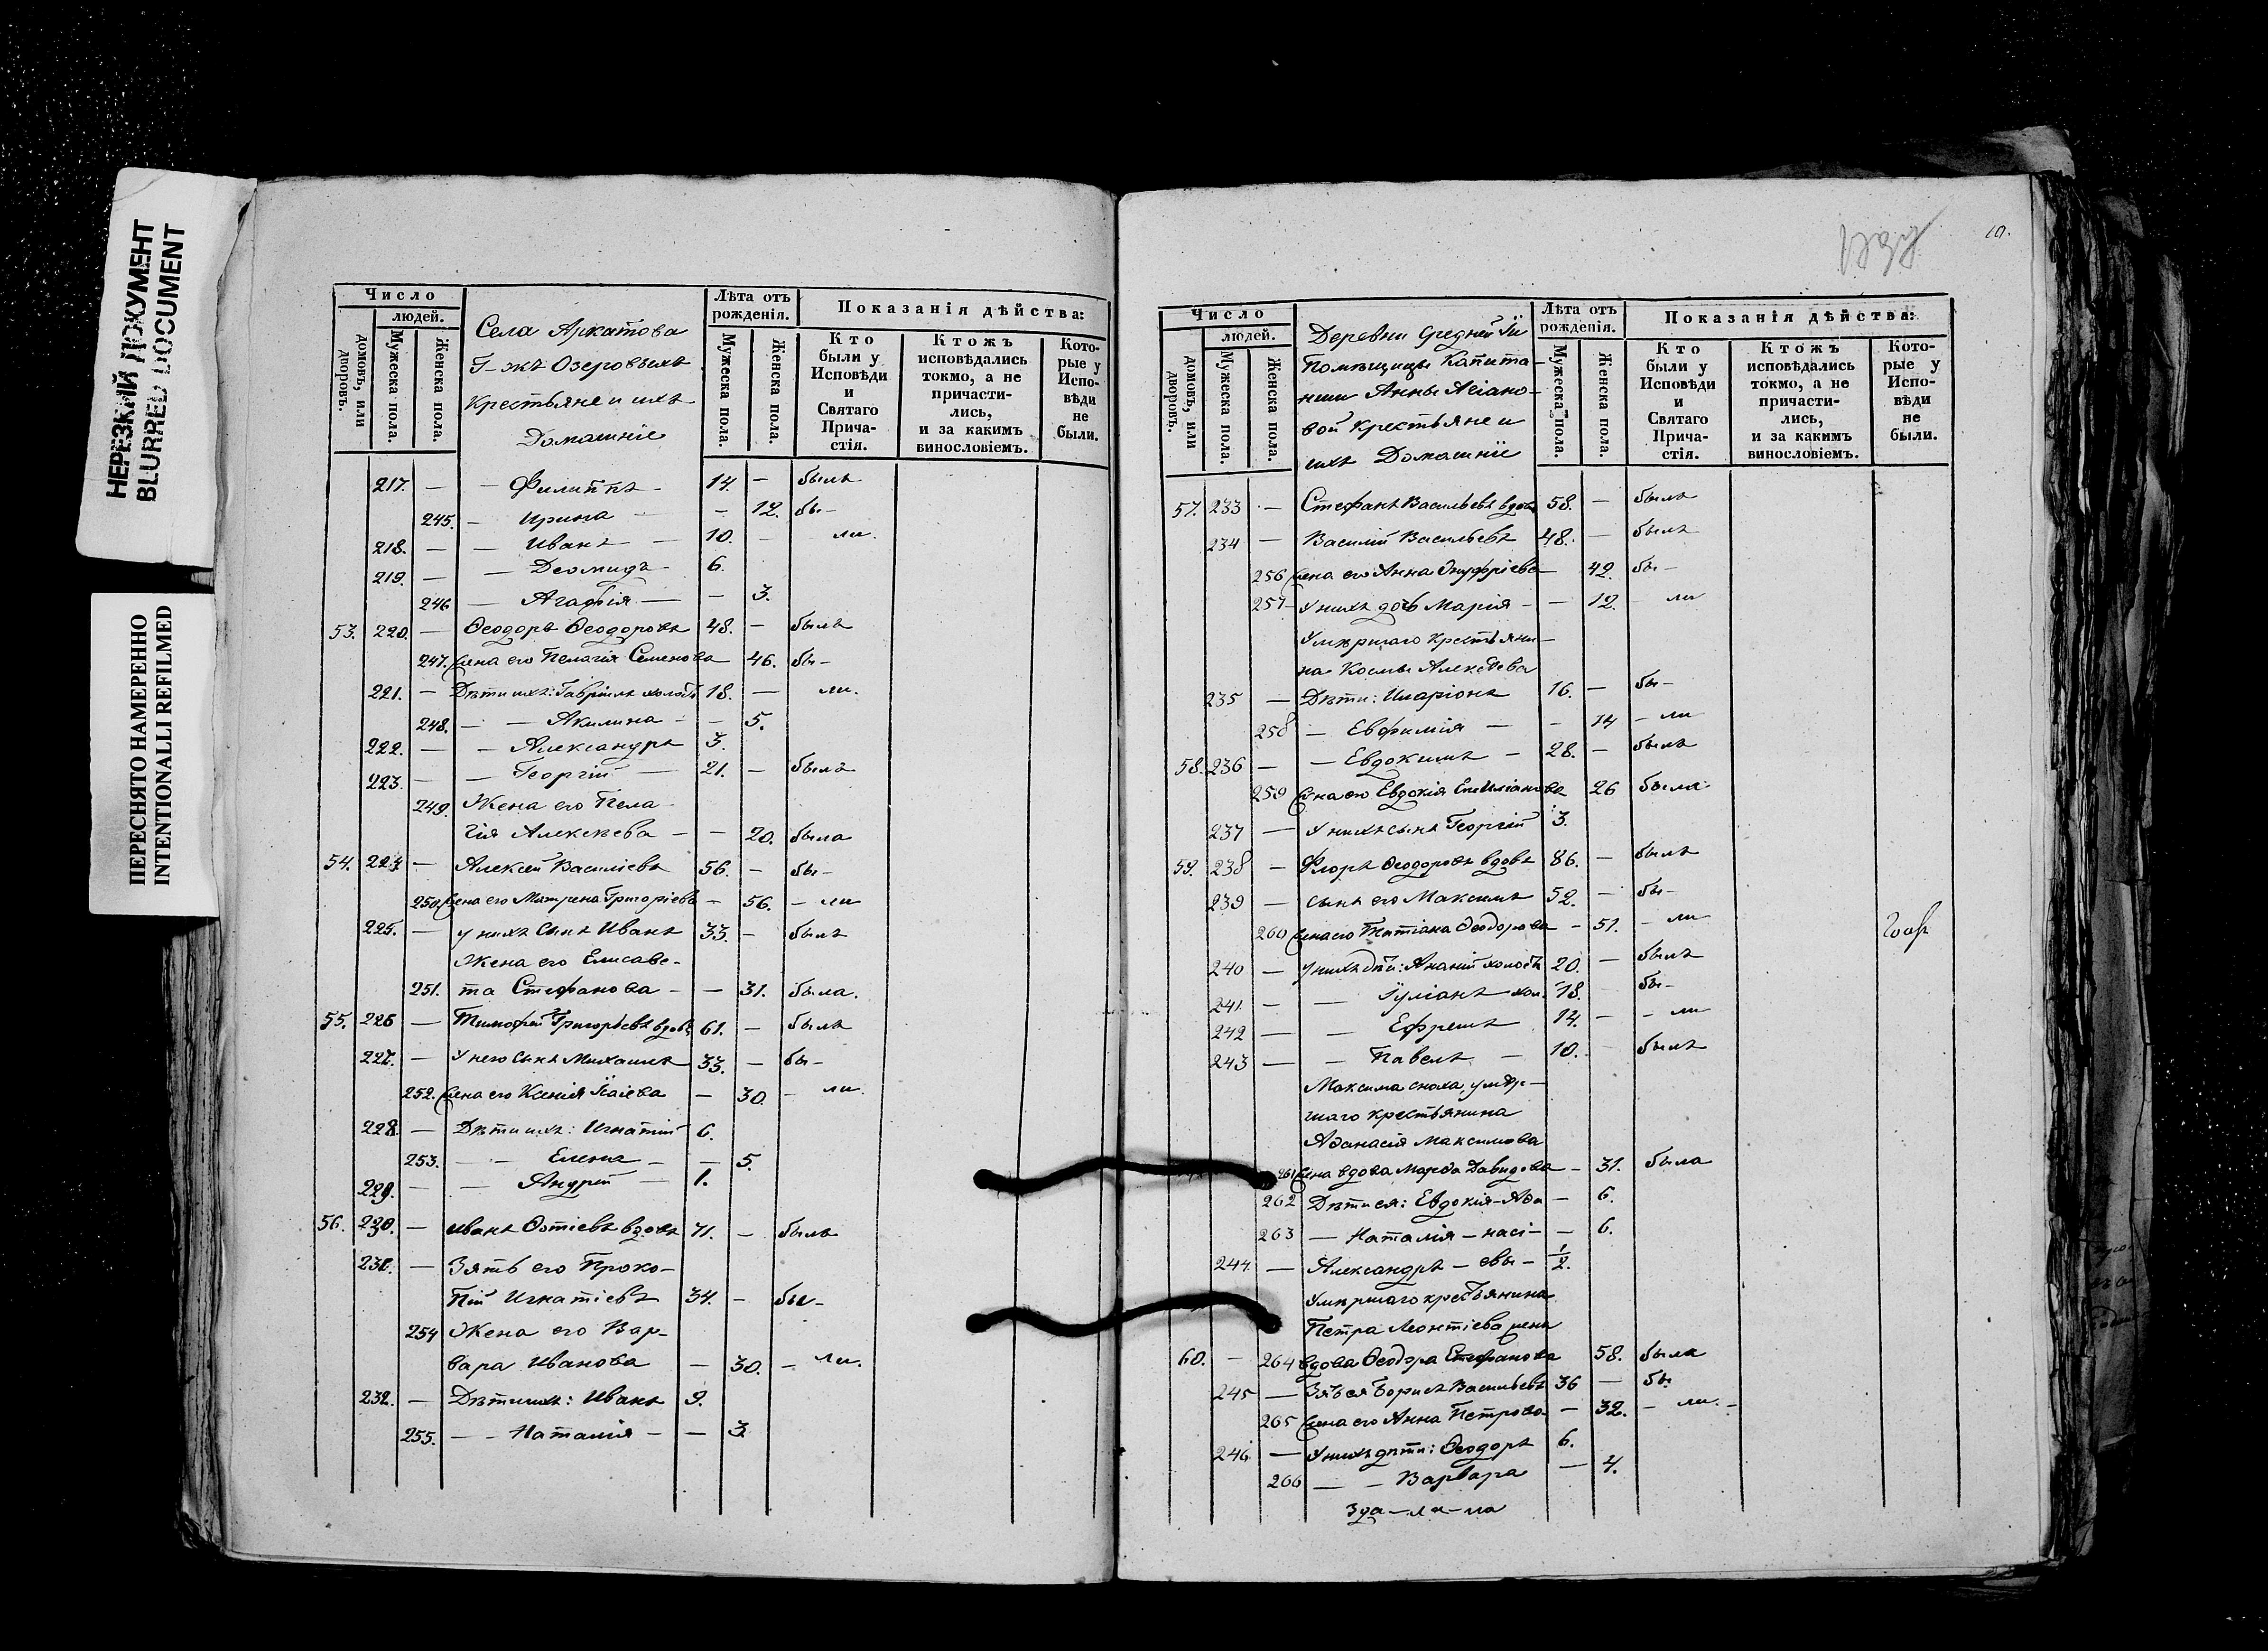 НЕРЕЗКИЙ ДОКУМЕНТ
BLURRED DOCUMENT
ПЕРЕСНЯТО НАМЕРЕННО
INTENTIONALLI REFILMED
Число
людей.
домовъ, или дворовъ.
Мужеска пола.
Женска пола.
Села Аркатова
Г-жъ Озеровыхъ
Крестьяне и ихъ
Домашніе
Лѣта отъ рожденія.
Мужеска пола.
Женска пола.
Показанія дѣйства:
Кто были у Исповѣди и Святаго Прича-стія.
Ктожъ исповѣдались токмо, а не причасти-лись, и за какимъ винословіемъ.
Кото-рые у Испо-вѣди не были.
217. — — Филиппъ — 14. — былъ
245. — Ирина — — 12. бы-
218. — — Иванъ — 10. — ли.
219. — — Деомидъ — 6.
246 — Агафія — — 3.
53. 220. — Ѳеодоръ Ѳеодоровъ 48. — былъ
247. Жена его Пелагія Семенова 46. бы-
221. — Дѣти ихъ: Гавріилъ холостъ 18. — ли.
248. — — Акилина — — 5.
222. — — Александръ 3.
223. — — Георгій — 21. — былъ
249. Жена его Пела-
гія Алексѣева — — 20. была
54. 224 — Алексѣй Василіевъ 56. — бы-
250. Жена его Матрена Григоріева — 56. — ли
225. — у нихъ сынъ Иванъ 33. — былъ
Жена его Елисаве-
251. та Стефанова — — 31. была.
55. 226 — Тимофей Григорьевъ вдовъ 61. — былъ
227. — У него сынъ Михаилъ 33. — бы-
252. Жена его Ксенія Исаіева — 30. — ли.
228. — Дѣти ихъ: Игнатій 6.
253. — — Елена — — 5.
229. — — Андрей — 1.
56. 230. — Иванъ Фотіевъ вдовъ 71. — былъ
231. — Зять его Проко-
пій Игнатіевъ 34. — бы-
254 Жена его Вар-
вара Иванова — 30. — ли.
232. — Дѣти ихъ: Иванъ 9.
255. — — Наталія — — 3
10.
Число
людей.
домовъ, или дворовъ.
Мужеска пола.
Женска пола.
Деревни Средней
Помѣщицы Капита-
нши Анны
вой Крестьяне и
ихъ Домашніе
Лѣта отъ рожденія.
Мужеска пола.
Женска пола.
Показанія дѣйства:
Кто были у Исповѣди и Святаго Прича-стія.
Ктожъ исповѣдались токмо, а не причасти-лись, и за какимъ винословіемъ.
Кото-рые у Испо-вѣди не были.
57. 233 — Стефанъ Васильевъ вдовъ 58. — былъ
234 — Василій Васильевъ 48. — былъ
256 Жена его Анна Онуфріева 42. бы-
257 У нихъ дочь Марія — — 12. — ли
Умѣршаго крестьяни-
на Козмы Алексѣева
235 — Дѣти: Иларіонъ 16. — бы-
258 — Евфимія — — 14 — ли
58. 236 — — Евдокимъ — 28. — былъ
259 Жена его Евдокія Емиліанова 26 была
237 — У нихъ сынъ Георгій 3.
59. 238 — Флоръ Ѳеодоровъ вдовъ 86. — былъ
239 — сынъ его Максимъ 52. — бы-
260 Жена его Татіана Ѳеодорова — 51. — ли
240 — У нихъ дѣти: Ананій холостъ 20. — былъ
241. — — Іуліанъ хол. 18. бы-
242 — — Ефремъ 14. — — ли
243 — — Павелъ — 10. былъ
Максима сноха, умѣр-
шаго крестьянина
Аѳанасія Максимова
261 Жена вдова Марѳа Давидова — 31. была
262 Дѣти ея: Евдокія — Аѳа — 6.
263 — Наталія — насі — — 6.
244. — Александръ — евы — 1/2.
Умѣршаго крестьянина
Петра Леонтіева жена
60. — 264 вдова Ѳеодора Стефанова 58. была
245 — Зять ея Борисъ Васильевъ 36 — бы
265 Жена его Анна Петрова — 32. — ли. —
246 — У нихъ дѣти: Ѳеодоръ 6.
266 — — Варвара — 4.